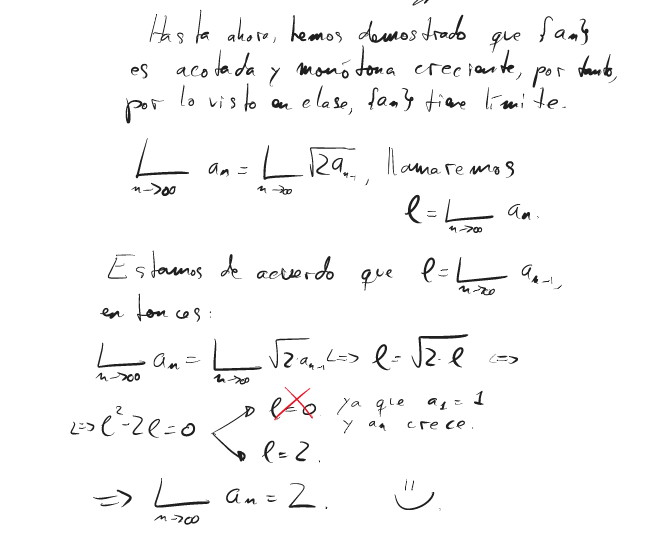 Hasta ahora, hemos demostrado que {an}
es acotada y monótona creciente, por tanto,
por lo visto en clase, {an} tiene límite.
L_{n→∞} a_n = L_{n→∞} √(2a_{n-1}), llamaremos
ℓ = L_{n→∞} a_n.
Estamos de acuerdo que ℓ = L_{n→∞} a_{n-1},
entonces:
L_{n→∞} a_n = L_{n→∞} √(2·a_{n-1}) <=> ℓ = √(2·ℓ) <=>
<=> ℓ²-2ℓ=0
ℓ=0 ya que a_1 = 1
y an crece.
ℓ=2.
=> L_{n→∞} a_n = 2.